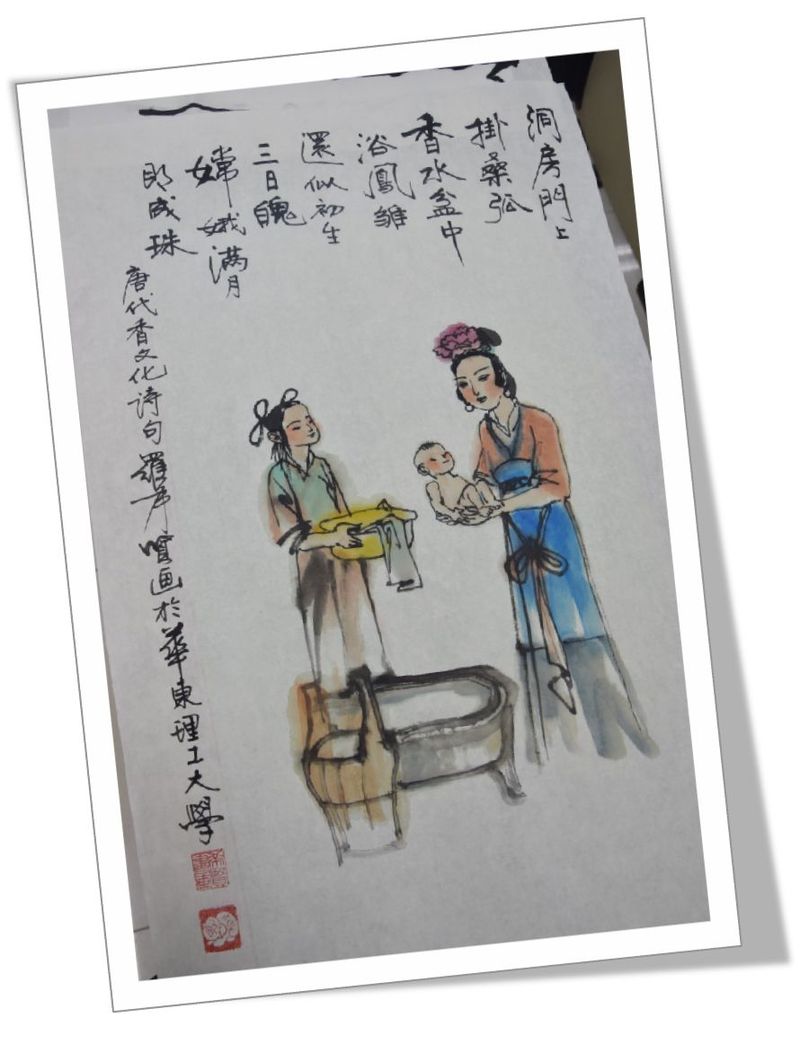 洞房門上
掛桑弧
香水盆中
浴鳳雛
還似初生
三日魄
嫦娥滿月
即成珠
唐代香文化诗句羅希賢画於華東理工大學